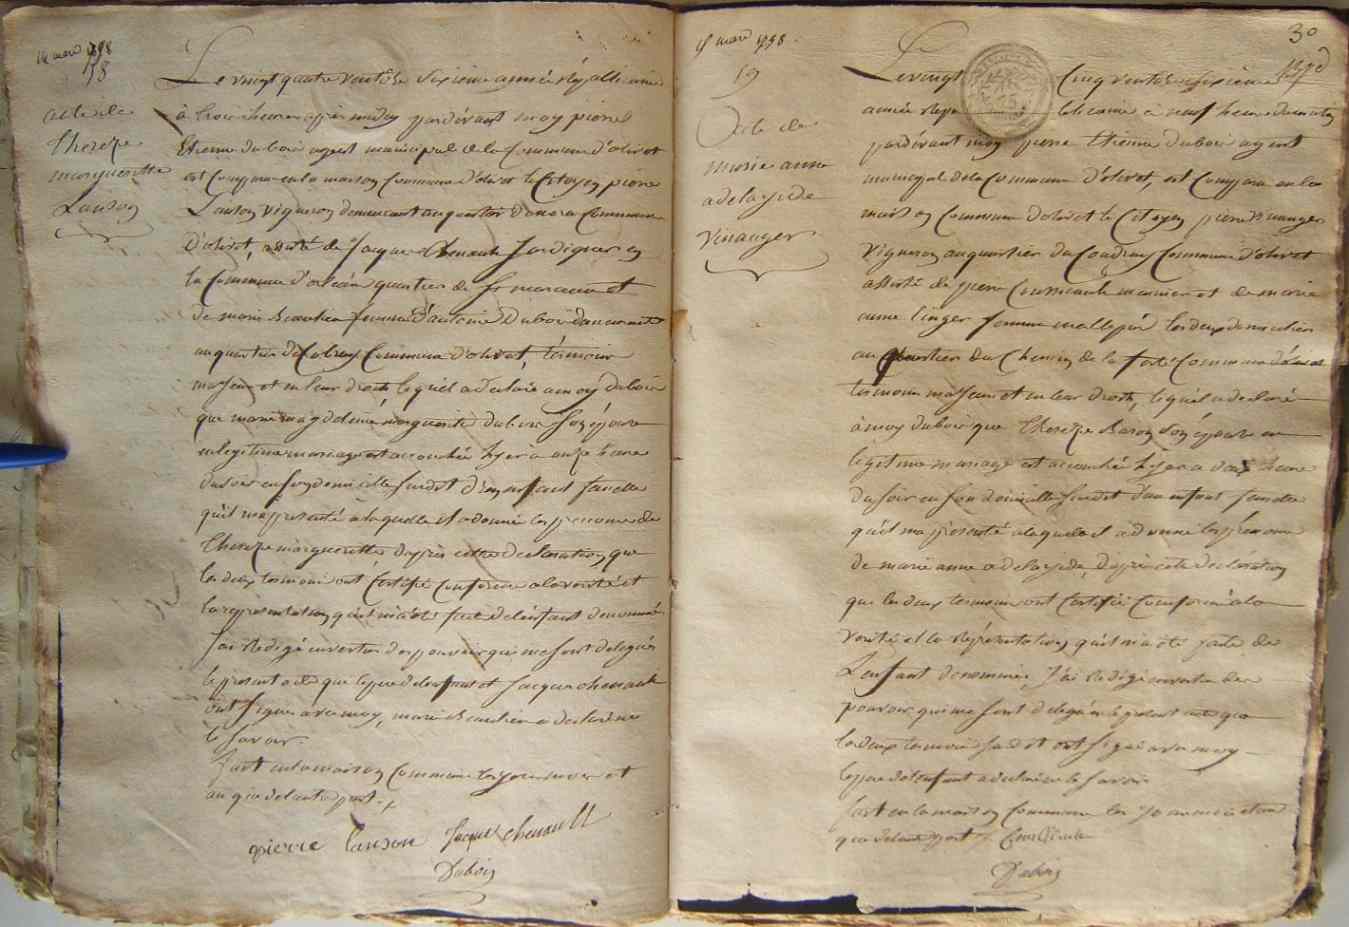 14 mars 1798
58
acte de
Thereze
margueritte
Lanson
Le vingt quatre ventôse Sixième année républicaine
à trois heures apprès midy pardevant moy pierre
Etienne dubois agent municipal de la Commune d'olivet
est Comparu en la maison Commune d'olivet le Citoyen pierre
Lanson vigneron demeurant au quartier Commune
D'olivet, assisté de Jacque chenault Jardignier en
la Commune d'orléan quartier de St marceau et
de marie femme d'antoine Dubois demeurante
au quartier Commune d'olivet, témoins
majeurs et en leur droits lequel a déclaré a moy dubois
que marie magdeleine margueritte dubois Son épouse
en legitime mariage est accouchée hyer a onze heure
du soir en son domicille susdit d'un enfant femelle
qu'il m'a présenté a laquelle il a donné les prenoms de
Thereze margueritte dapprès cette declaration que
les deux temoins ont Certifié Conforme a la verité et
la représentation qui m'a été fait de l'enfant denommé
j'ai redigé en vertu des pouvoir qui me sont delegués
le present acte que le père de l'enfant et Jacque chenault
ont signé avec moy, marie a declaré ne
le savoir.
fait en la maison Commune les jour mois et
an que de l'autre part
pierre lanson Jacque chenault
Dubois
15 mars 1798.
30
59
Acte de
marie anne
adelayide
Vinanger
Le vingt Cinq ventôse sixième
année républicaine à neuf heure du matin
pardevant moy pierre Etienne dubois agent
municipal de la Commune d'olivet, est Comparu en la
maison Commune d'olivet le Citoyen pierre Vinanger
Vigneron au quartier du Coudray Commune d'olivet
assisté de pierre meunier et de marie
anne linger femme les deux demeurant
au quartier du Chemin de la ferté Commune d'olivet
temoins majeurs et en leur droits, lequel a déclaré
à moy dubois que Thereze Baron son épouse en
legitime mariage est accouchée hyer a heure
du soir en son domicille susdit d'un enfant femelle
qu'il m'a présenté a laquelle il a donné les prenoms
de marie anne adelayide, d'après cette déclaration
que les deux temoins ont Certifié Conforme a la
verité et la représentation qui m'a été faite de
L'enfant denommé J'ai redigé en vertu des
pouvoir qui me sont delegué le présent acte que
les deux temoins susdit ont signé avec moy
le père de l'enfant a declaré ne le savoir
fait en la maison Commune les jour mois et an
que de l'autre part
Dubois